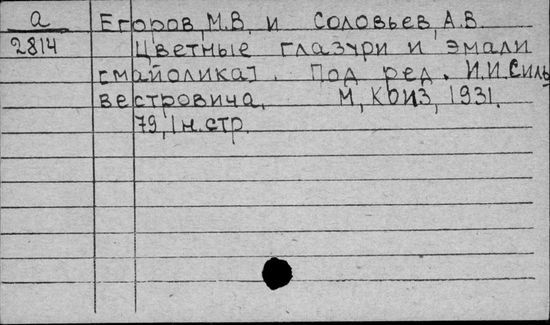 а
2814
Егоров, М.В. и Соловьев, А.В.
Цветные глазури и эмали
[майолика]. Под ред. И.И.Силь
вестровича. М, КОИЗ, 1931.
79, 1 н.стр.